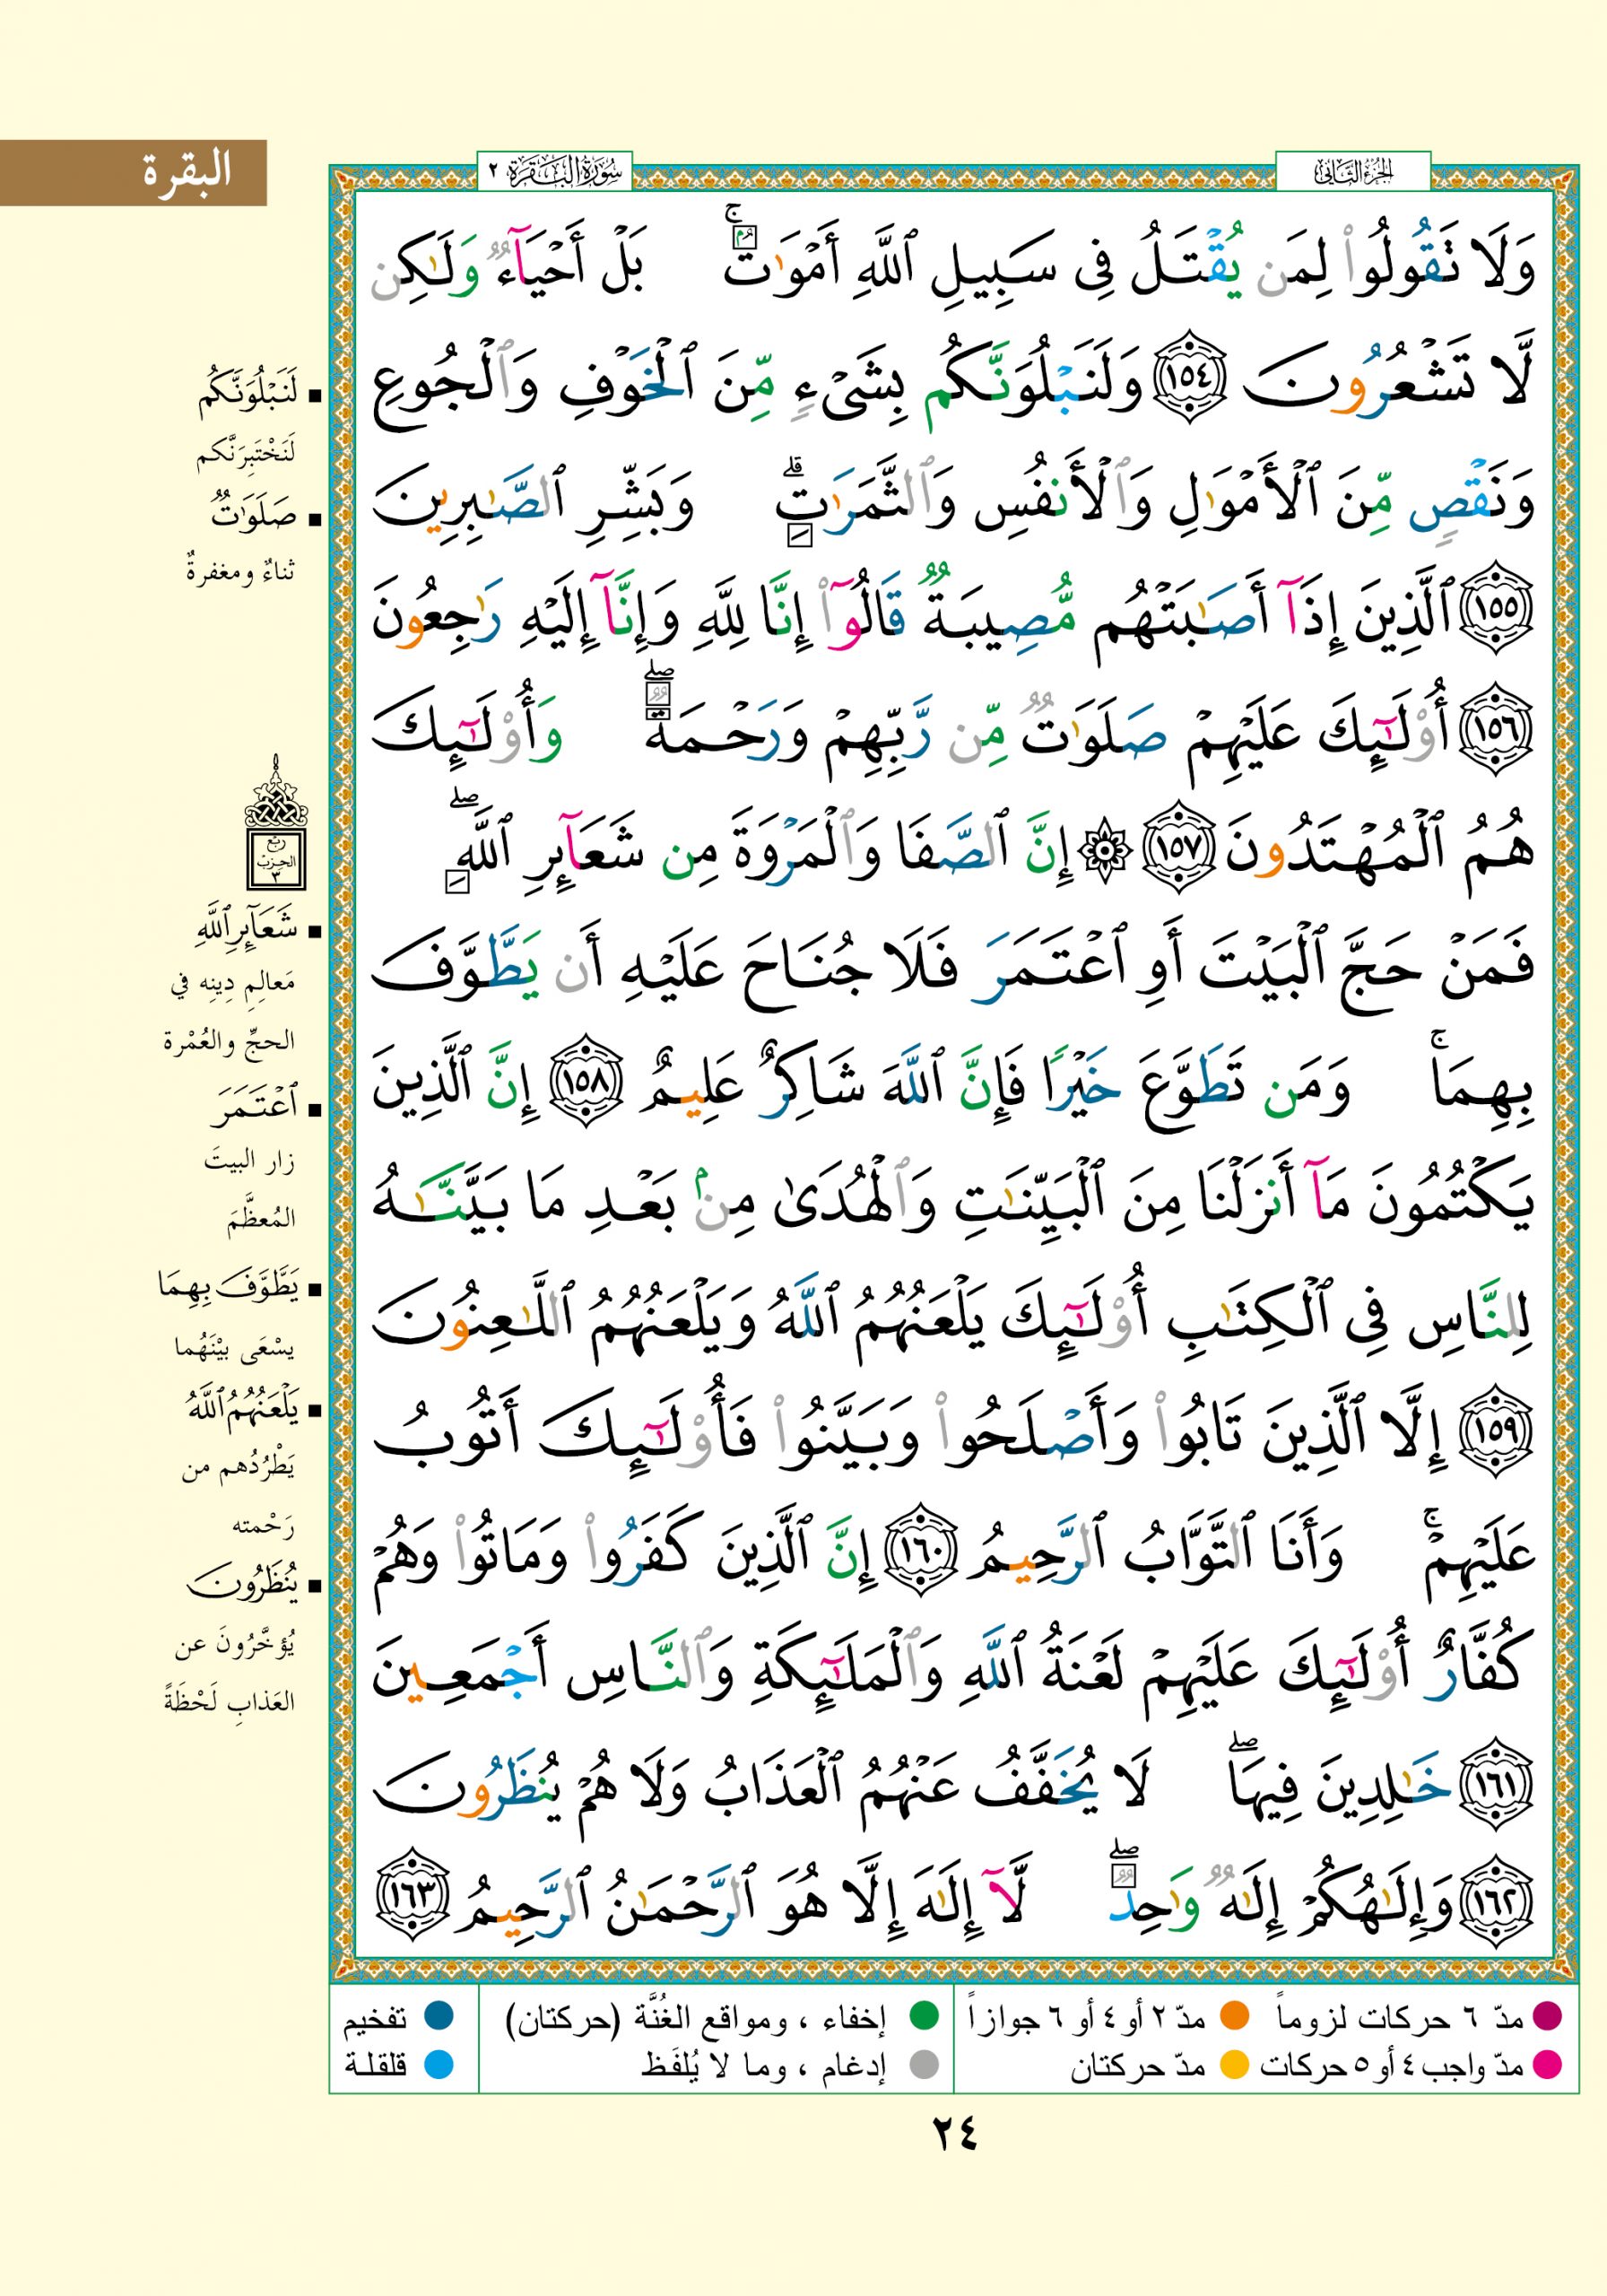 البقرة
الجزء الثاني
سورة البقرة ٢
وَلَا تَقُولُوا۟ لِمَن يُقْتَلُ فِى سَبِيلِ ٱللَّهِ أَمْوَٰتٌۢ ۚ بَلْ أَحْيَآءٌ وَلَٰكِن
لَّا تَشْعُرُونَ ١٥٤ وَلَنَبْلُوَنَّكُم بِشَىْءٍ مِّنَ ٱلْخَوْفِ وَٱلْجُوعِ
وَنَقْصٍ مِّنَ ٱلْأَمْوَٰلِ وَٱلْأَنفُسِ وَٱلثَّمَرَٰتِ ۗ وَبَشِّرِ ٱلصَّٰبِرِينَ
١٥٥ ٱلَّذِينَ إِذَآ أَصَٰبَتْهُم مُّصِيبَةٌ قَالُوٓا۟ إِنَّا لِلَّهِ وَإِنَّآ إِلَيْهِ رَٰجِعُونَ
١٥٦ أُو۟لَٰٓئِكَ عَلَيْهِمْ صَلَوَٰتٌ مِّن رَّبِّهِمْ وَرَحْمَةٌ ۖ وَأُو۟لَٰٓئِكَ
هُمُ ٱلْمُهْتَدُونَ ١٥٧ ۞ إِنَّ ٱلصَّفَا وَٱلْمَرْوَةَ مِن شَعَآئِرِ ٱللَّهِ ۖ
فَمَنْ حَجَّ ٱلْبَيْتَ أَوِ ٱعْتَمَرَ فَلَا جُنَاحَ عَلَيْهِ أَن يَطَّوَّفَ
بِهِمَا ۚ وَمَن تَطَوَّعَ خَيْرًا فَإِنَّ ٱللَّهَ شَاكِرٌ عَلِيمٌ ١٥٨ إِنَّ ٱلَّذِينَ
يَكْتُمُونَ مَآ أَنزَلْنَا مِنَ ٱلْبَيِّنَٰتِ وَٱلْهُدَىٰ مِنۢ بَعْدِ مَا بَيَّنَّٰهُ
لِلنَّاسِ فِى ٱلْكِتَٰبِ أُو۟لَٰٓئِكَ يَلْعَنُهُمُ ٱللَّهُ وَيَلْعَنُهُمُ ٱللَّٰعِنُونَ
١٥٩ إِلَّا ٱلَّذِينَ تَابُوا۟ وَأَصْلَحُوا۟ وَبَيَّنُوا۟ فَأُو۟لَٰٓئِكَ أَتُوبُ
عَلَيْهِمْ ۚ وَأَنَا ٱلتَّوَّابُ ٱلرَّحِيمُ ١٦٠ إِنَّ ٱلَّذِينَ كَفَرُوا۟ وَمَاتُوا۟ وَهُمْ
كُفَّارٌ أُو۟لَٰٓئِكَ عَلَيْهِمْ لَعْنَةُ ٱللَّهِ وَٱلْمَلَٰٓئِكَةِ وَٱلنَّاسِ أَجْمَعِينَ
١٦١ خَٰلِدِينَ فِيهَا ۖ لَا يُخَفَّفُ عَنْهُمُ ٱلْعَذَابُ وَلَا هُمْ يُنظَرُونَ
١٦٢ وَإِلَٰهُكُمْ إِلَٰهٌ وَٰحِدٌ ۖ لَّآ إِلَٰهَ إِلَّا هُوَ ٱلرَّحْمَٰنُ ٱلرَّحِيمُ ١٦٣
▪ لَنَبْلُوَنَّكُم
لَنَخْتَبِرَنَّكم
▪ صَلَوَٰتٌ
ثناءٌ ومغفرةٌ
ربع
الحزب
٣
▪ شَعَآئِرِ ٱللَّهِ
مَعالِمِ دِينِه في
الحجِّ والعُمْرة
▪ ٱعْتَمَرَ
زار البيتَ
المُعظَّمَ
▪ يَطَّوَّفَ بِهِمَا
يسْعَى بيْنَهُما
▪ يَلْعَنُهُمُ ٱللَّهُ
يَطْرُدُهم من
رَحْمته
▪ يُنظَرُونَ
يُؤخَّرُونَ عن
العَذابِ لَحْظَةً
مدّ ٦ حركات لزوماً
مدّ ٢ أو ٤ أو ٦ جوازاً
إخفاء ، ومواقع الغُنَّة (حركتان)
تفخيم
مدّ واجب ٤ أو ٥ حركات
مدّ حركتان
إدغام ، وما لا يُلفَظ
قلقلة
٢٤